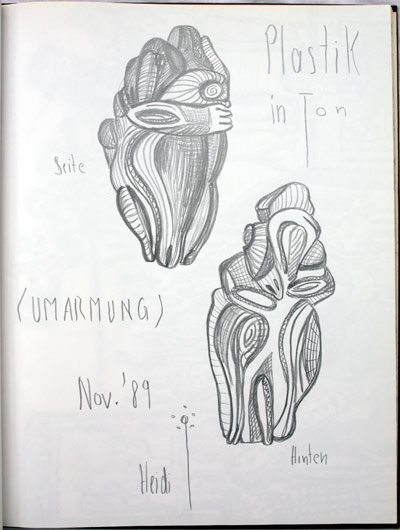 Plastik
in Ton
Seite
(UMARMUNG)
Nov. '89
Heidi
Hinten